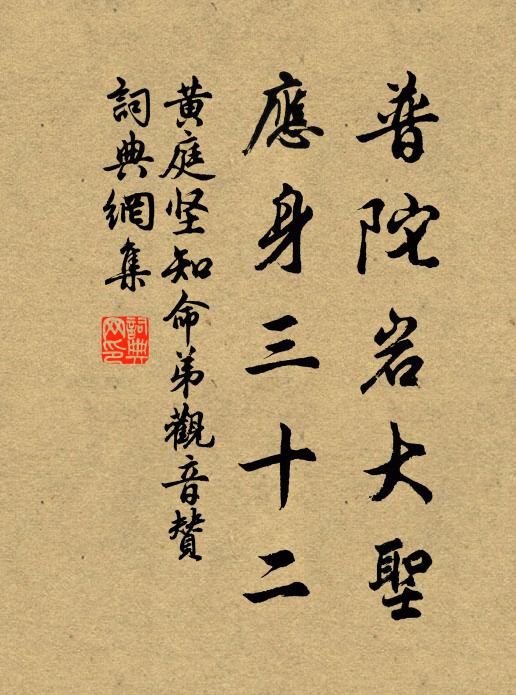 普陀岩大聖
應身三十二
黃庭坚知命弟觀音贊
詞典網集
詞典網印